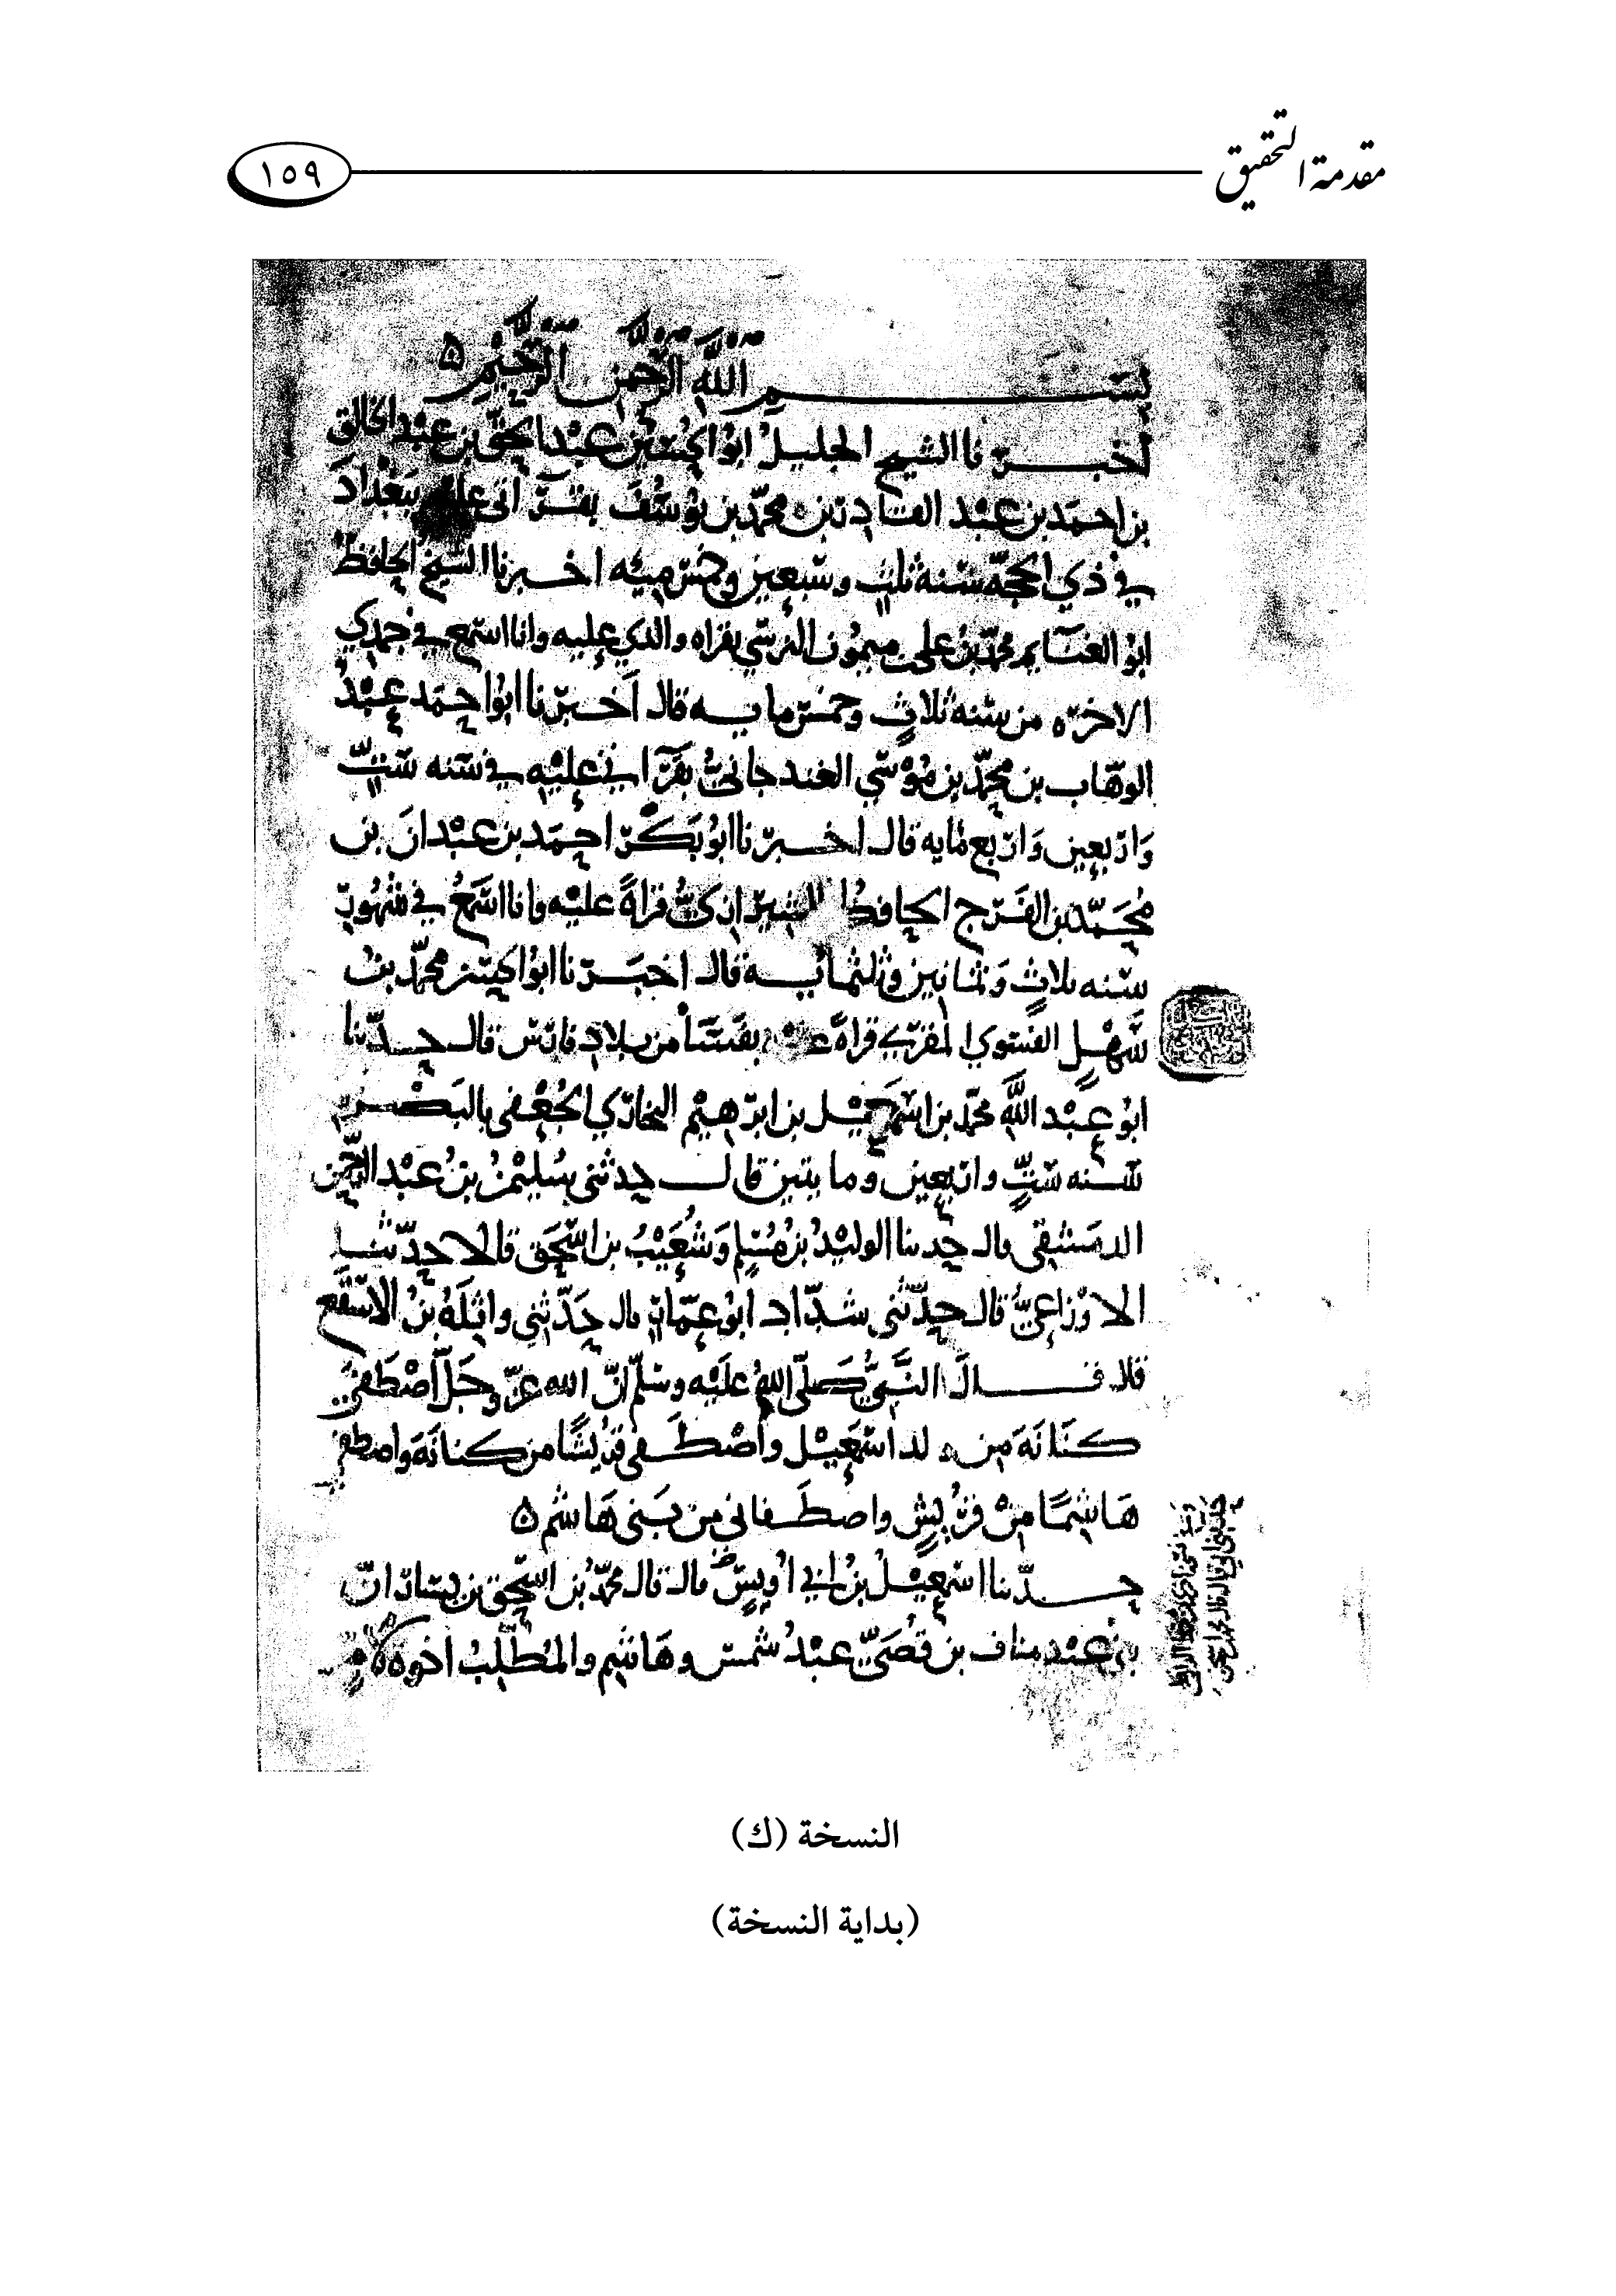 مقدمة التحقيق
١٥٩
بسم الله الرحمن الرحيم ه
أخبرنا الشيخ الجليل ابو الحسين عبد الحق بن عبد الخالق
بن احمد بن عبد القادر بن محمد بن يوسف بقرآتي عليه ببغداد
في ذي الحجة سنه ثلث وسبعين وخمس ميه اخبرنا الشيخ الحافظ
ابو الغنايم محمد بن علي بن ميمون النرسي بقراه والدي عليه وانا اسمع في جمدي
الاخره من سنه ثلاث وخمس مايه قال أخبرنا ابو احمد عبد
الوهاب بن محمد بن موسي الغندجاني بقرآتي عليه في سنه ست
وأربعين وأربع مايه قال اخبرنا ابو بكر احمد بن عبدان بن
محمد بن الفرج الحافظ الشيرازي قراةً عليه وانا اسمع في شهور
سنه ثلاث وثمانين وثلثمايه قال اخبرنا ابو الحسن محمد بن
سهل الفسوي المقري قراةً بفسا من بلاد فارس قال حدثنا
ابو عبد الله محمد بن اسمعيل بن ابرهيم البخاري الجعفي بالبصره
سنه ست واربعين ومايتين قال حدثني سليمن بن عبد الرحمن
الدمشقي قال حدثنا الوليد بن مسلم وشعيب بن اسحق قالا حدثنا
الاوزاعي قال حدثني شداد ابو عمار قال حدثني واثلة بن الاسقع
قال قال النبي صلى الله عليه وسلم ان الله عز وجل أصطفى
كنانة من ولد اسمعيل واصطفى قريشًا من كنانة واصطفى
هاشمًا من قريش واصطفاني من بني هاشم ه
حدثنا اسمعيل بن ابي أويس قال قال محمد بن اسحق بن يسار ان
بن عبد مناف بن قصي عبد شمس وهاشم والمطلب اخوه
النسخة (ك)
(بداية النسخة)